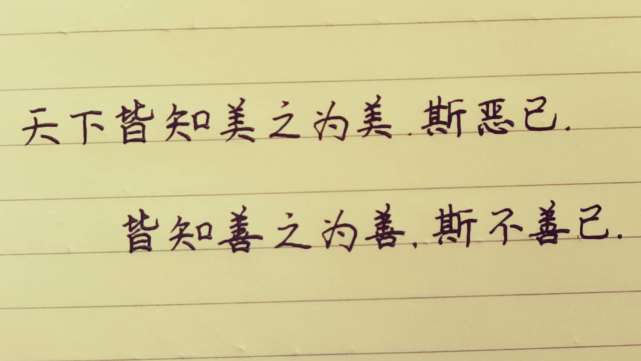 天下皆知美之为美.斯恶已.
皆知善之为善,斯不善已.